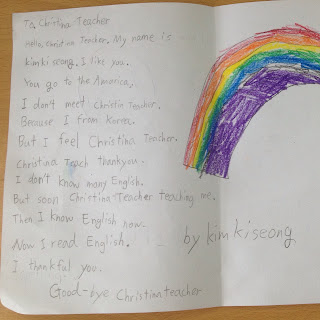 To. Christina Teacher
Hello, Christina Teacher. My name is
kim ki seong. I like you.
You go to the America,
I don't meet Christin Teacher.
Because I from Korea.
But I feel Christina Teacher.
Christina Teach thankyou.
I don't know many English.
But soon Christina Teacher teaching me.
Then I know English now.
Now I read English.
I thankful you.
Good-bye Christinateacher
by kim ki seong